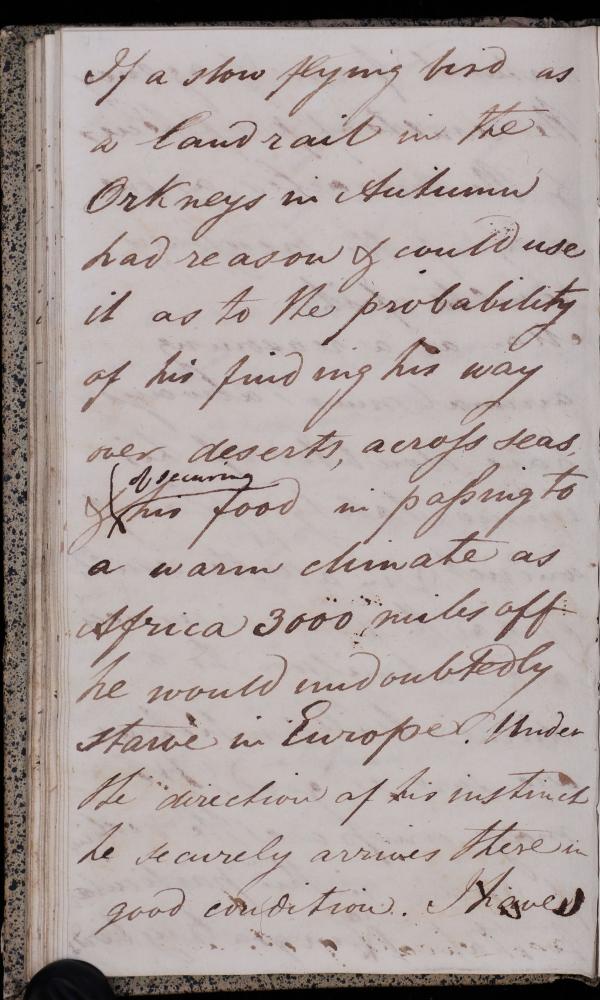 If a slow flying bird as
a landrail in the
Orkneys in Autumn
had reason & could use
it as to the probability
of his finding his way
over deserts, across seas,
of securing
& his food in passing to
a warm climate as
Africa 3000 miles off
he would undoubtedly
starve in Europe. Under
the direction of his instinct
he securely arrives there in
good condition. I have